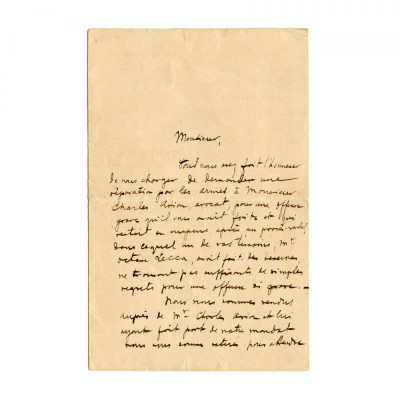 Monsieur,
Vous nous avez fait l'honneur
de nous charger de demander une
réparation par les armes à Monsieur
Charles avocat, pour une offense
grave qu'il vous avait faite et qui
était en après un procès-verbal
dans lequel un de vos témoins, Mr
Lecca, avait fait des réserves,
ne trouvant pas suffisants de simples
regrets pour une offense si grave. —
Nous nous sommes rendus
auprès de Mr Charles et lui
ayant fait part de notre mandat
nous nous sommes retirés pour attendre